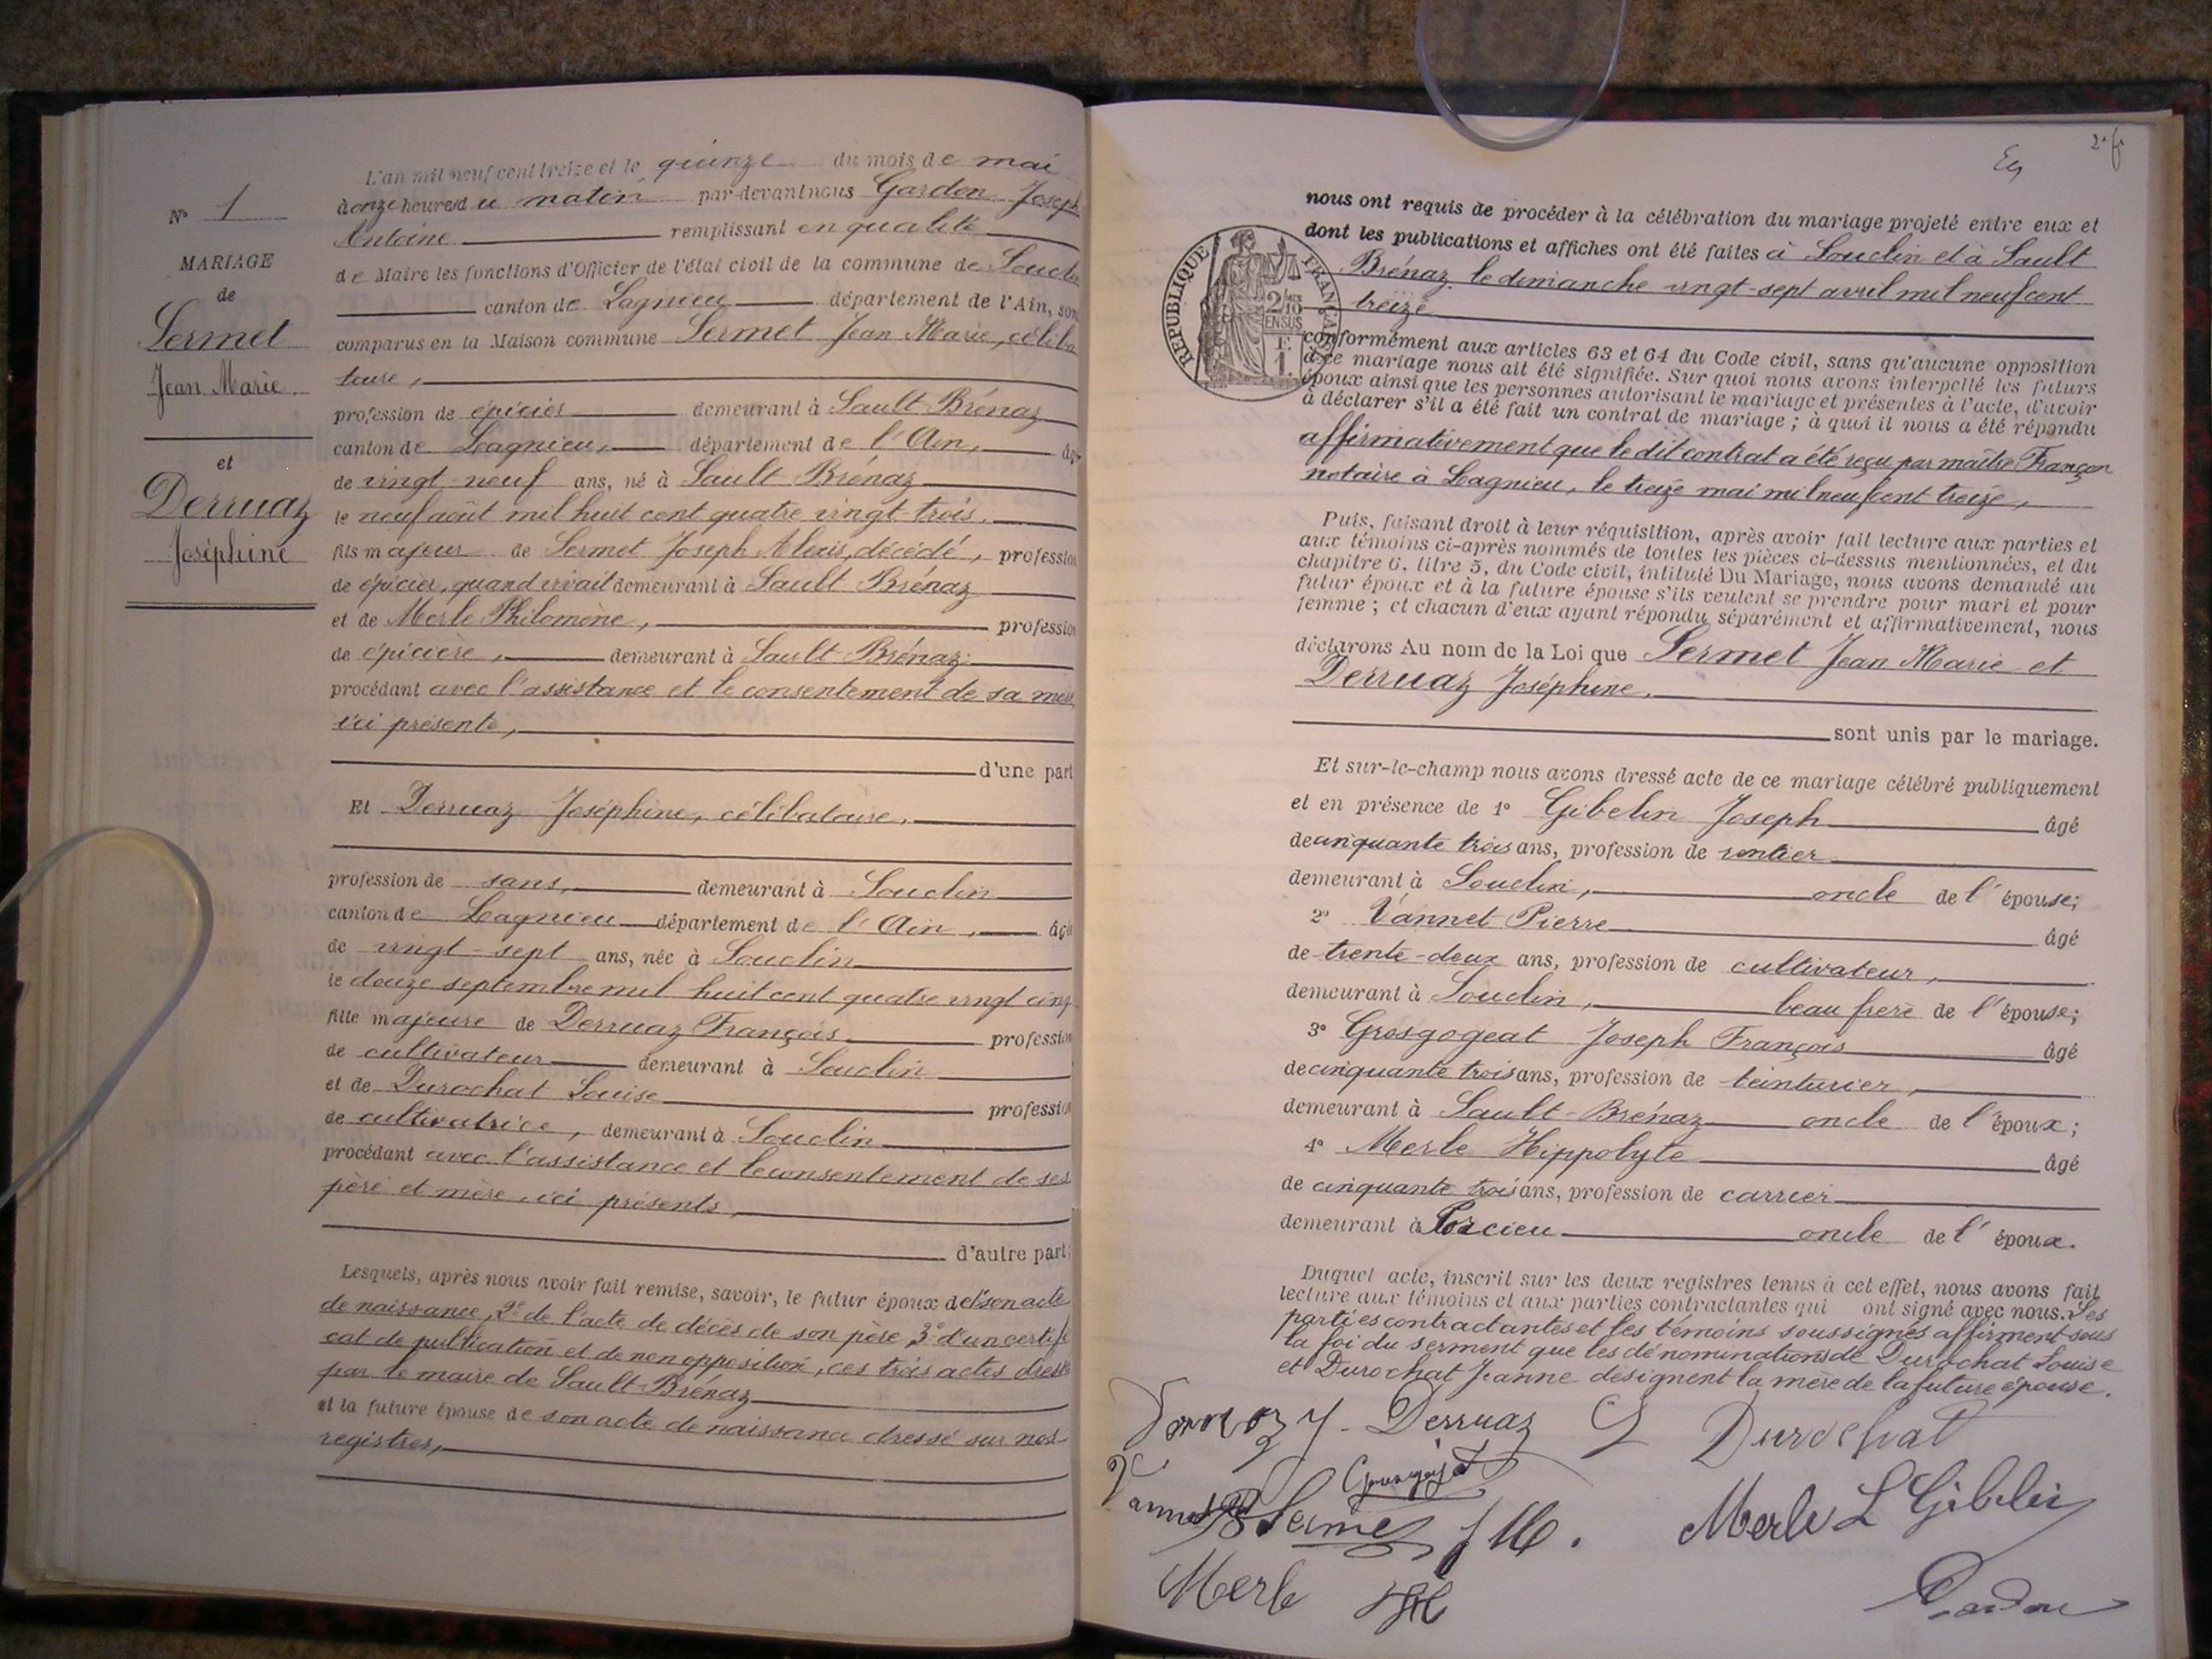 N° 1
MARIAGE
de
Sermet
Jean Marie
et
Derruaz
Joséphine
L'an mil neuf cent treize et le quinze du mois de mai
à onze heures du matin par-devant nous Gardon Joseph
Antoine remplissant en qualité
de Maire les fonctions d'Officier de l'état civil de la commune de Souclin
canton de Lagnieu département de l'Ain, son
comparus en la Maison commune Sermet Jean Marie, céliba
taire,
profession de épicier demeurant à Sault-Brénaz
canton de Lagnieu, département de l'Ain, âgé
de vingt-neuf ans, né à Sault-Brénaz
le neuf août mil huit cent quatre vingt trois.
fils majeur de Sermet Joseph Alexis, décédé, profession
de épicier, quand vivait demeurant à Sault Brénaz
et de Merle Philomène, profession
de épicière, demeurant à Sault-Brénaz;
procédant avec l'assistance et le consentement de sa mère,
ici présente,
d'une part
Et Derruaz Joséphine, célibataire.
profession de sans, demeurant à Souclin
canton de Lagnieu département de l'Ain, âgé
de vingt-sept ans, née à Souclin
le douze septembre mil huit cent quatre vingt cinq
fille majeure de Derruaz François profession
de cultivateur demeurant à Souclin
et de Durochat Louise profession
de cultivatrice, demeurant à Souclin
procédant avec l'assistance et le consentement de ses
père et mère, ici présents,
d'autre part;
Lesquels, après nous avoir fait remise, savoir, le futur époux de 1° son acte
de naissance, 2° de l'acte de décès de son père, 3° d'un certifi
cat de publication et de non opposition, ces trois actes dressés
par le maire de Sault-Brénaz
et la future épouse de son acte de naissance dressé sur nos
registres,
2e f
nous ont requis de procéder à la célébration du mariage projeté entre eux et
dont les publications et affiches ont été faites à Souclin et à Sault
Brénaz, le dimanche vingt-sept avril mil neuf cent
treize
REPUBLIQUE FRANÇAISE
2/10
EN SUS
F.
1.
conformément aux articles 63 et 64 du Code civil, sans qu'aucune opposition
à ce mariage nous ait été signifiée. Sur quoi nous avons interpellé les futurs
époux ainsi que les personnes autorisant le mariage et présentes à l'acte, d'avoir
à déclarer s'il a été fait un contrat de mariage; à quoi il nous a été répondu
affirmativement que le dit contrat a été reçu par maître Françon
notaire à Lagnieu, le treize mai mil neuf cent treize,
Puis, faisant droit à leur réquisition, après avoir fait lecture aux parties et
aux témoins ci-après nommés de toutes les pièces ci-dessus mentionnées, et du
chapitre 6, titre 5, du Code civil, intitulé Du Mariage, nous avons demandé au
futur époux et à la future épouse s'ils veulent se prendre pour mari et pour
femme; et chacun d'eux ayant répondu séparément et affirmativement, nous
déclarons Au nom de la Loi que Sermet Jean Marie et
Derruaz Joséphine.
sont unis par le mariage.
Et sur-le-champ nous avons dressé acte de ce mariage célébré publiquement
et en présence de 1° Gibelin Joseph âgé
de cinquante trois ans, profession de rentier
demeurant à Souclin, oncle de l'épouse;
2° Vannet Pierre âgé
de trente-deux ans, profession de cultivateur,
demeurant à Souclin, beau frère de l'épouse;
3° Grosgogeat Joseph François âgé
de cinquante trois ans, profession de teinturier,
demeurant à Sault-Brénaz oncle de l'époux;
4° Merle Hippolyte âgé
de cinquante trois ans, profession de carrier
demeurant à Porcieu oncle de l'époux.
Duquel acte, inscrit sur les deux registres tenus à cet effet, nous avons fait
lecture aux témoins et aux parties contractantes qui ont signé avec nous. Les
parties contractantes et les témoins soussignés affirment sous
la foi du serment que les dénominations de Durochat Louise
et Durochat Jeanne désignent la mère de la future épouse.
J. Derruaz Durochat
Vannet Sermet J M. Merle L Gibelin
Merle
Gardon